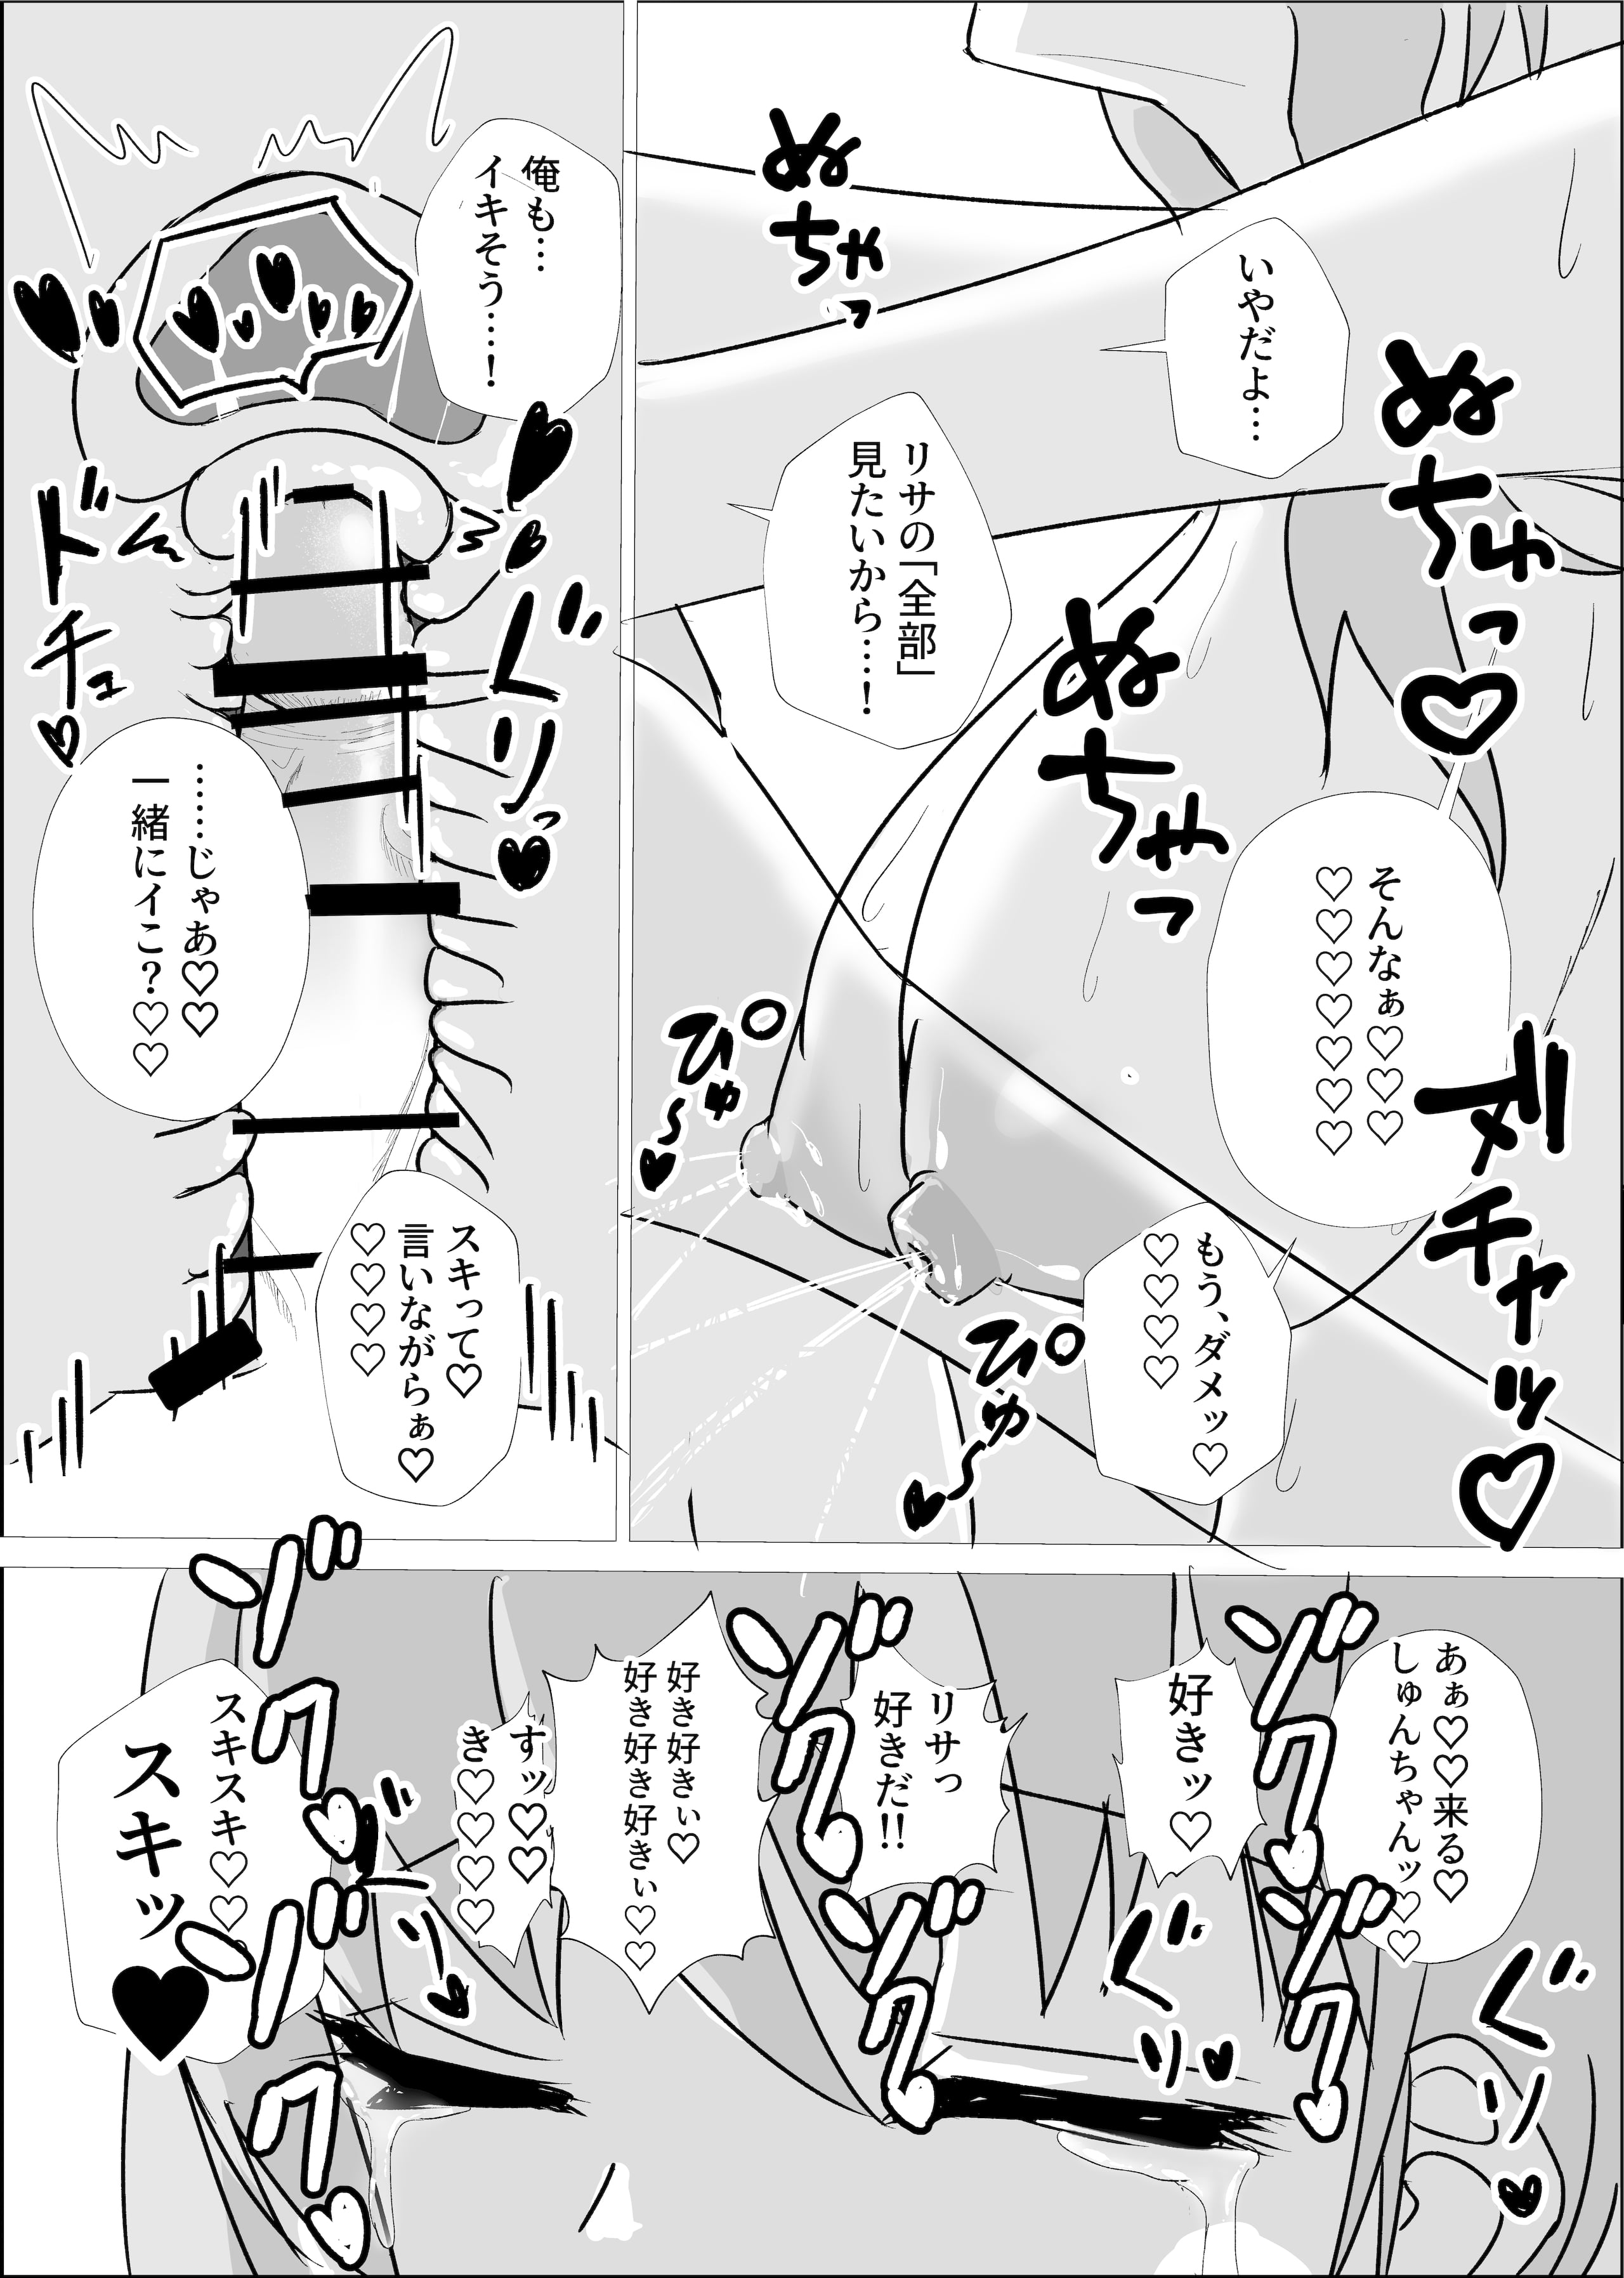 いやだよ…
リサの「全部」
見たいから…！
そんなぁ♡♡♡
♡♡♡♡♡♡♡
もう、ダメッ♡
♡♡♡♡
ぬちゃっ
ぬちゅっ♡
ぬちゃっ
ズチャッ♡
ぴゅ〜♥
ぴゅ〜♥
俺も…
イキそう……！
ドチュ♡
ぐりっ♥
……じゃあ♡♡
一緒にイこ？♡♡
スキって♡
言いながらぁ♡
♡♡♡♡
あぁ♡♡来る♡
しゅんちゃんッ♡♡
好きッ♡
リサっ
好きだ!!
好き好きぃ♡
好き好き好きぃ♡♡
すッ♡♡
き♡♡♡♡
スキスキ♡♡
スキッ♥
ゾク♡
ゾク♡
ゾク
ゾク♡
ゾク♡
ゾク♡
ぐり♥
ぐり♥
ぐり♥